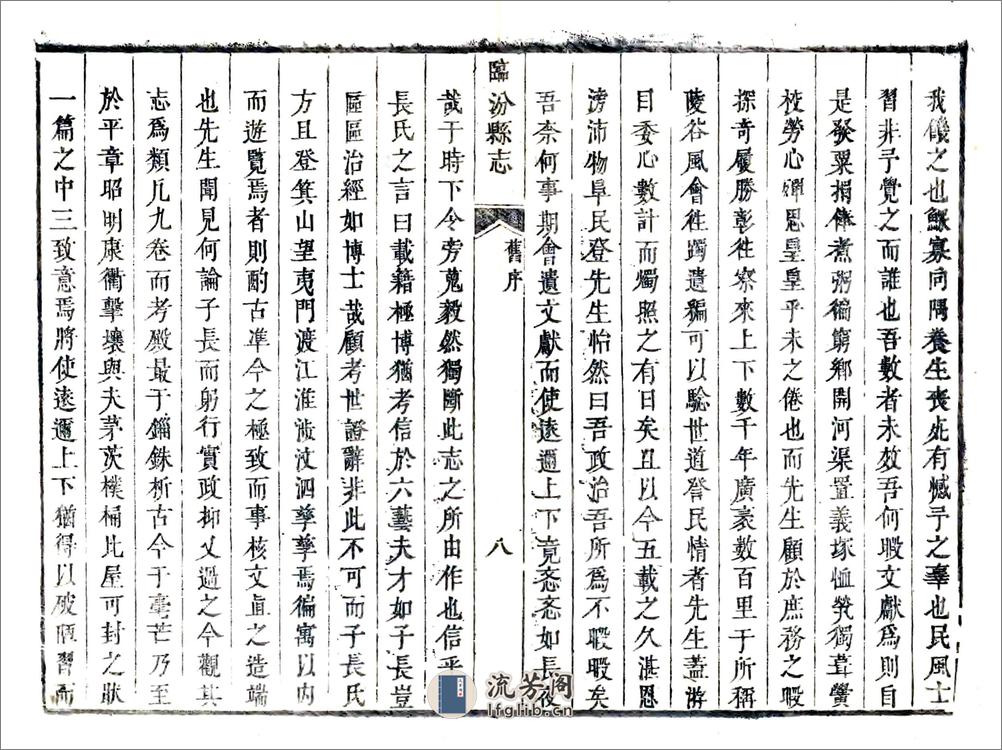 我儀之也鰥寡同隅養生喪死有憾予之辜也民風士
習非予覺之而誰也吾數者未效吾何暇文獻爲則自
是發粟捐俸煮粥徧窮鄉開河渠置義塚恤煢獨葺黌
校勞心殫思皇皇乎未之倦也而先生顧於庶務之暇
探奇履勝彰徃察來上下數千年廣袤數百里于所稱
陵谷風會徃躅遺編可以驗世道詧民情者先生蓋游
目委心數計而燭照之有日矣且以今五載之久湛恩
滂沛物阜民登先生怡然曰吾政治吾所爲不暇暇矣
吾奈何事期會遺文獻而使逺邇上下竟泰泰如長夜
臨汾縣志
舊序
八
哉于時下令旁蒐毅然獨斷此志之所由作也信乎
長氏之言曰載籍極博猶考信於六藝夫才如子長豈
區區治經如博士哉顧考世證辭非此不可而子長氏
方且登箕山望夷門渡江淮涉汶泗孳孳焉徧寓以内
而遊覽焉者則酌古準今之極致而事核文直之造端
也先生聞見何論子長而躬行實政抑又過之今觀其
志爲類凢九卷而考殿最于錙銖析古今于毫芒乃至
於平章昭明康衢擊壤與夫茅茨樸桷比屋可封之狀
一篇之中三致意焉將使逺邇上下猶得以破陋習而
流芳阁
lfglib.cn